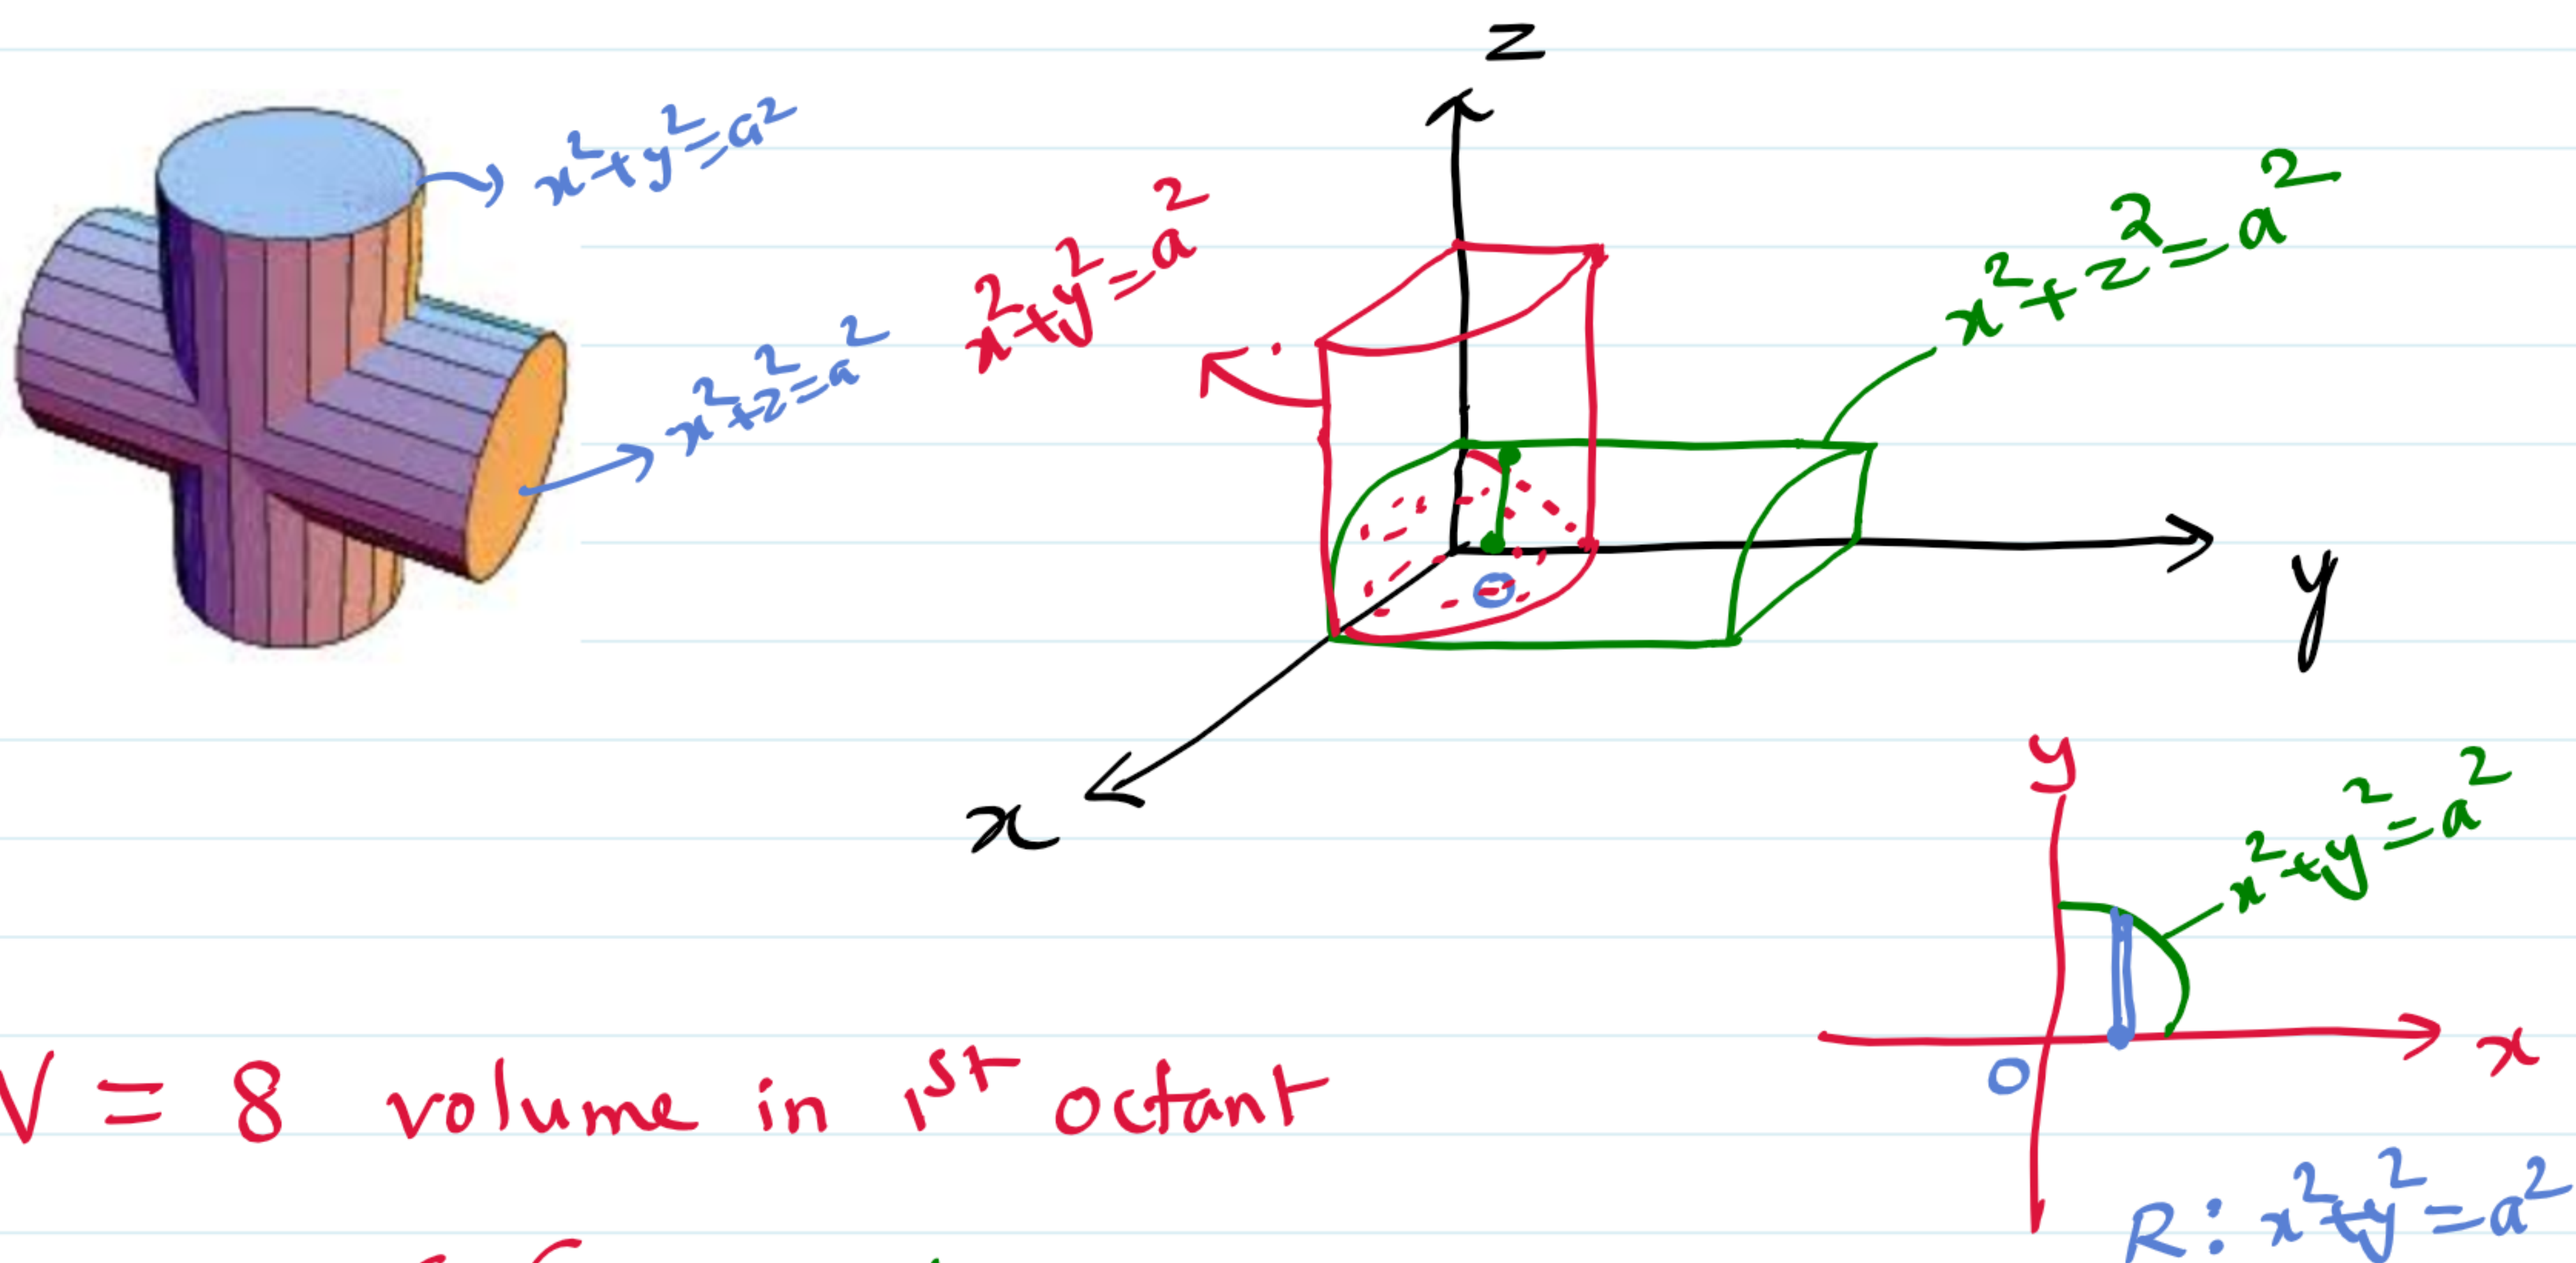 z
x²+y²=a²
x²+z²=a²
x²+y²=a²
x²+z²=a²
y
x
O
y
x²+y²=a²
x
O
V = 8 volume in 1st octant
R: x²+y²=a²